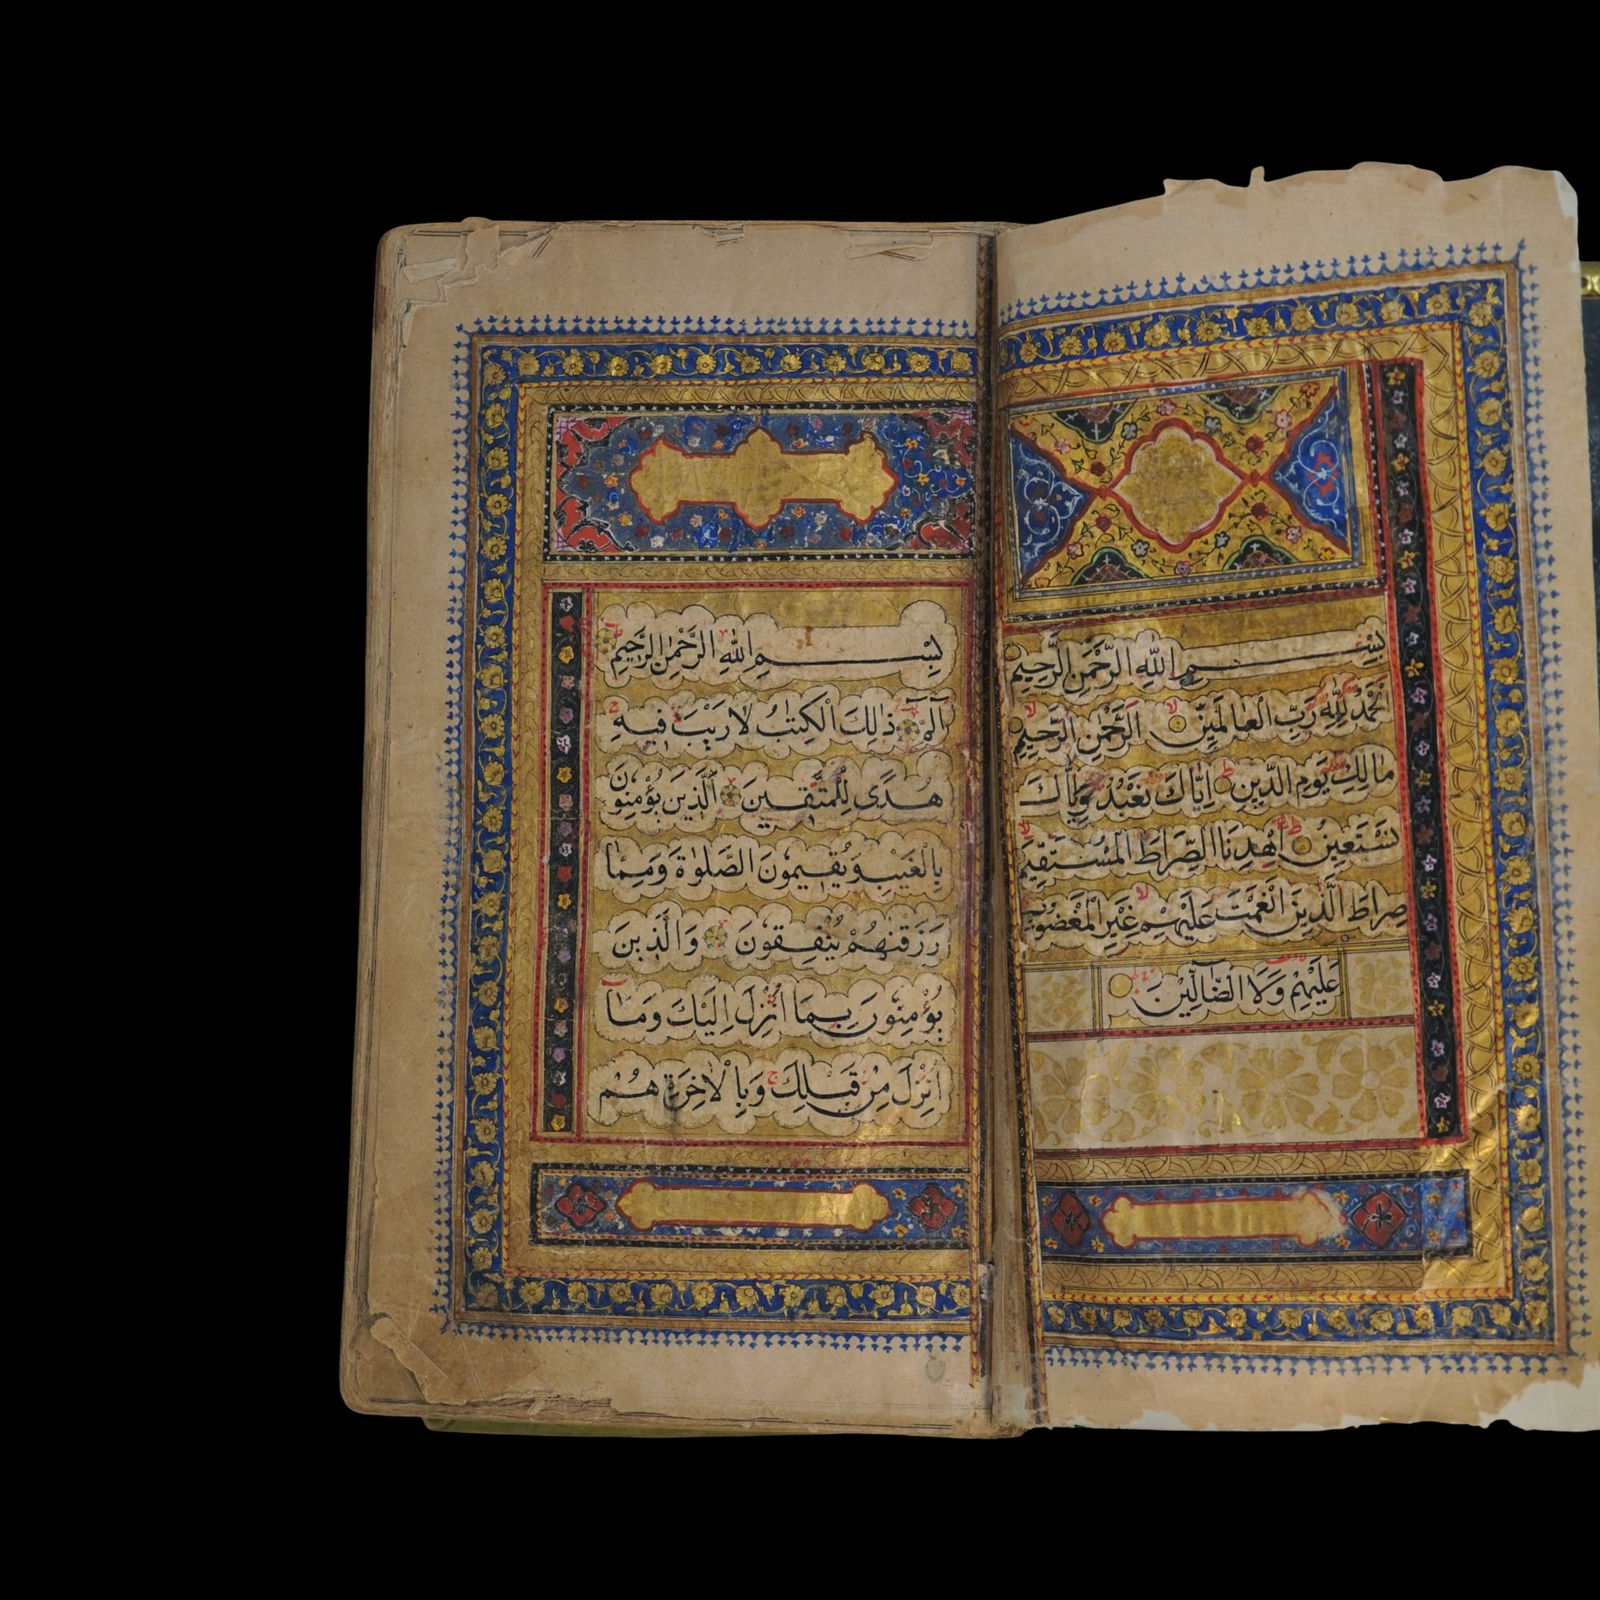 بِسْمِ اللهِ الرَّحْمٰنِ الرَّحِيْمِ
اَلْحَمْدُ لِلّٰهِ رَبِّ الْعَالَمِيْنَ الرَّحْمٰنِ الرَّحِيْمِ
مَالِكِ يَوْمِ الدِّيْنِ اِيَّاكَ نَعْبُدُ وَاِيَّاكَ
نَسْتَعِيْنُ اِهْدِنَا الصِّرَاطَ الْمُسْتَقِيْمَ
صِرَاطَ الَّذِيْنَ اَنْعَمْتَ عَلَيْهِمْ غَيْرِ الْمَغْضُوْبِ
عَلَيْهِمْ وَلَا الضَّالِّيْنَ
بِسْمِ اللهِ الرَّحْمٰنِ الرَّحِيْمِ
الٓمّٓ ذٰلِكَ الْكِتٰبُ لَا رَيْبَ فِيْهِ
هُدًى لِلْمُتَّقِيْنَ الَّذِيْنَ يُؤْمِنُوْنَ
بِالْغَيْبِ وَيُقِيْمُوْنَ الصَّلٰوةَ وَمِمَّا
رَزَقْنٰهُمْ يُنْفِقُوْنَ وَالَّذِيْنَ
يُؤْمِنُوْنَ بِمَا اُنْزِلَ اِلَيْكَ وَمَا
اُنْزِلَ مِنْ قَبْلِكَ وَبِالْاٰخِرَةِ هُمْ